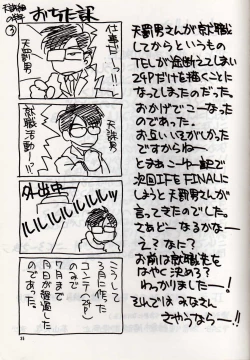 天誅組の野望
③
おちた課
仕事だーっ!!
天罰男
就職活動ー!?
天誅男
外出中
ルルルルルルルルッ
こうして
3月に作った
コンテ(24P)
のみで
7月まで
月日が経過した
のであった。
天罰男さんが就職
してからというもの
TELが途断えてしまい
24Pだけを描くことに
なってしまったのだった。
おかげでこーなった
のであった。
お互いいそがしかった
ですからねー
とまあこーゆー訳で
次回はFE FINALに
しようと天罰男さんが
言ってきたのでした。
さあどーなるかなー
え?なに?
お前は就職先を
はやく決めろ?
わっかりましたー!
それではみなさん
さようならー!!